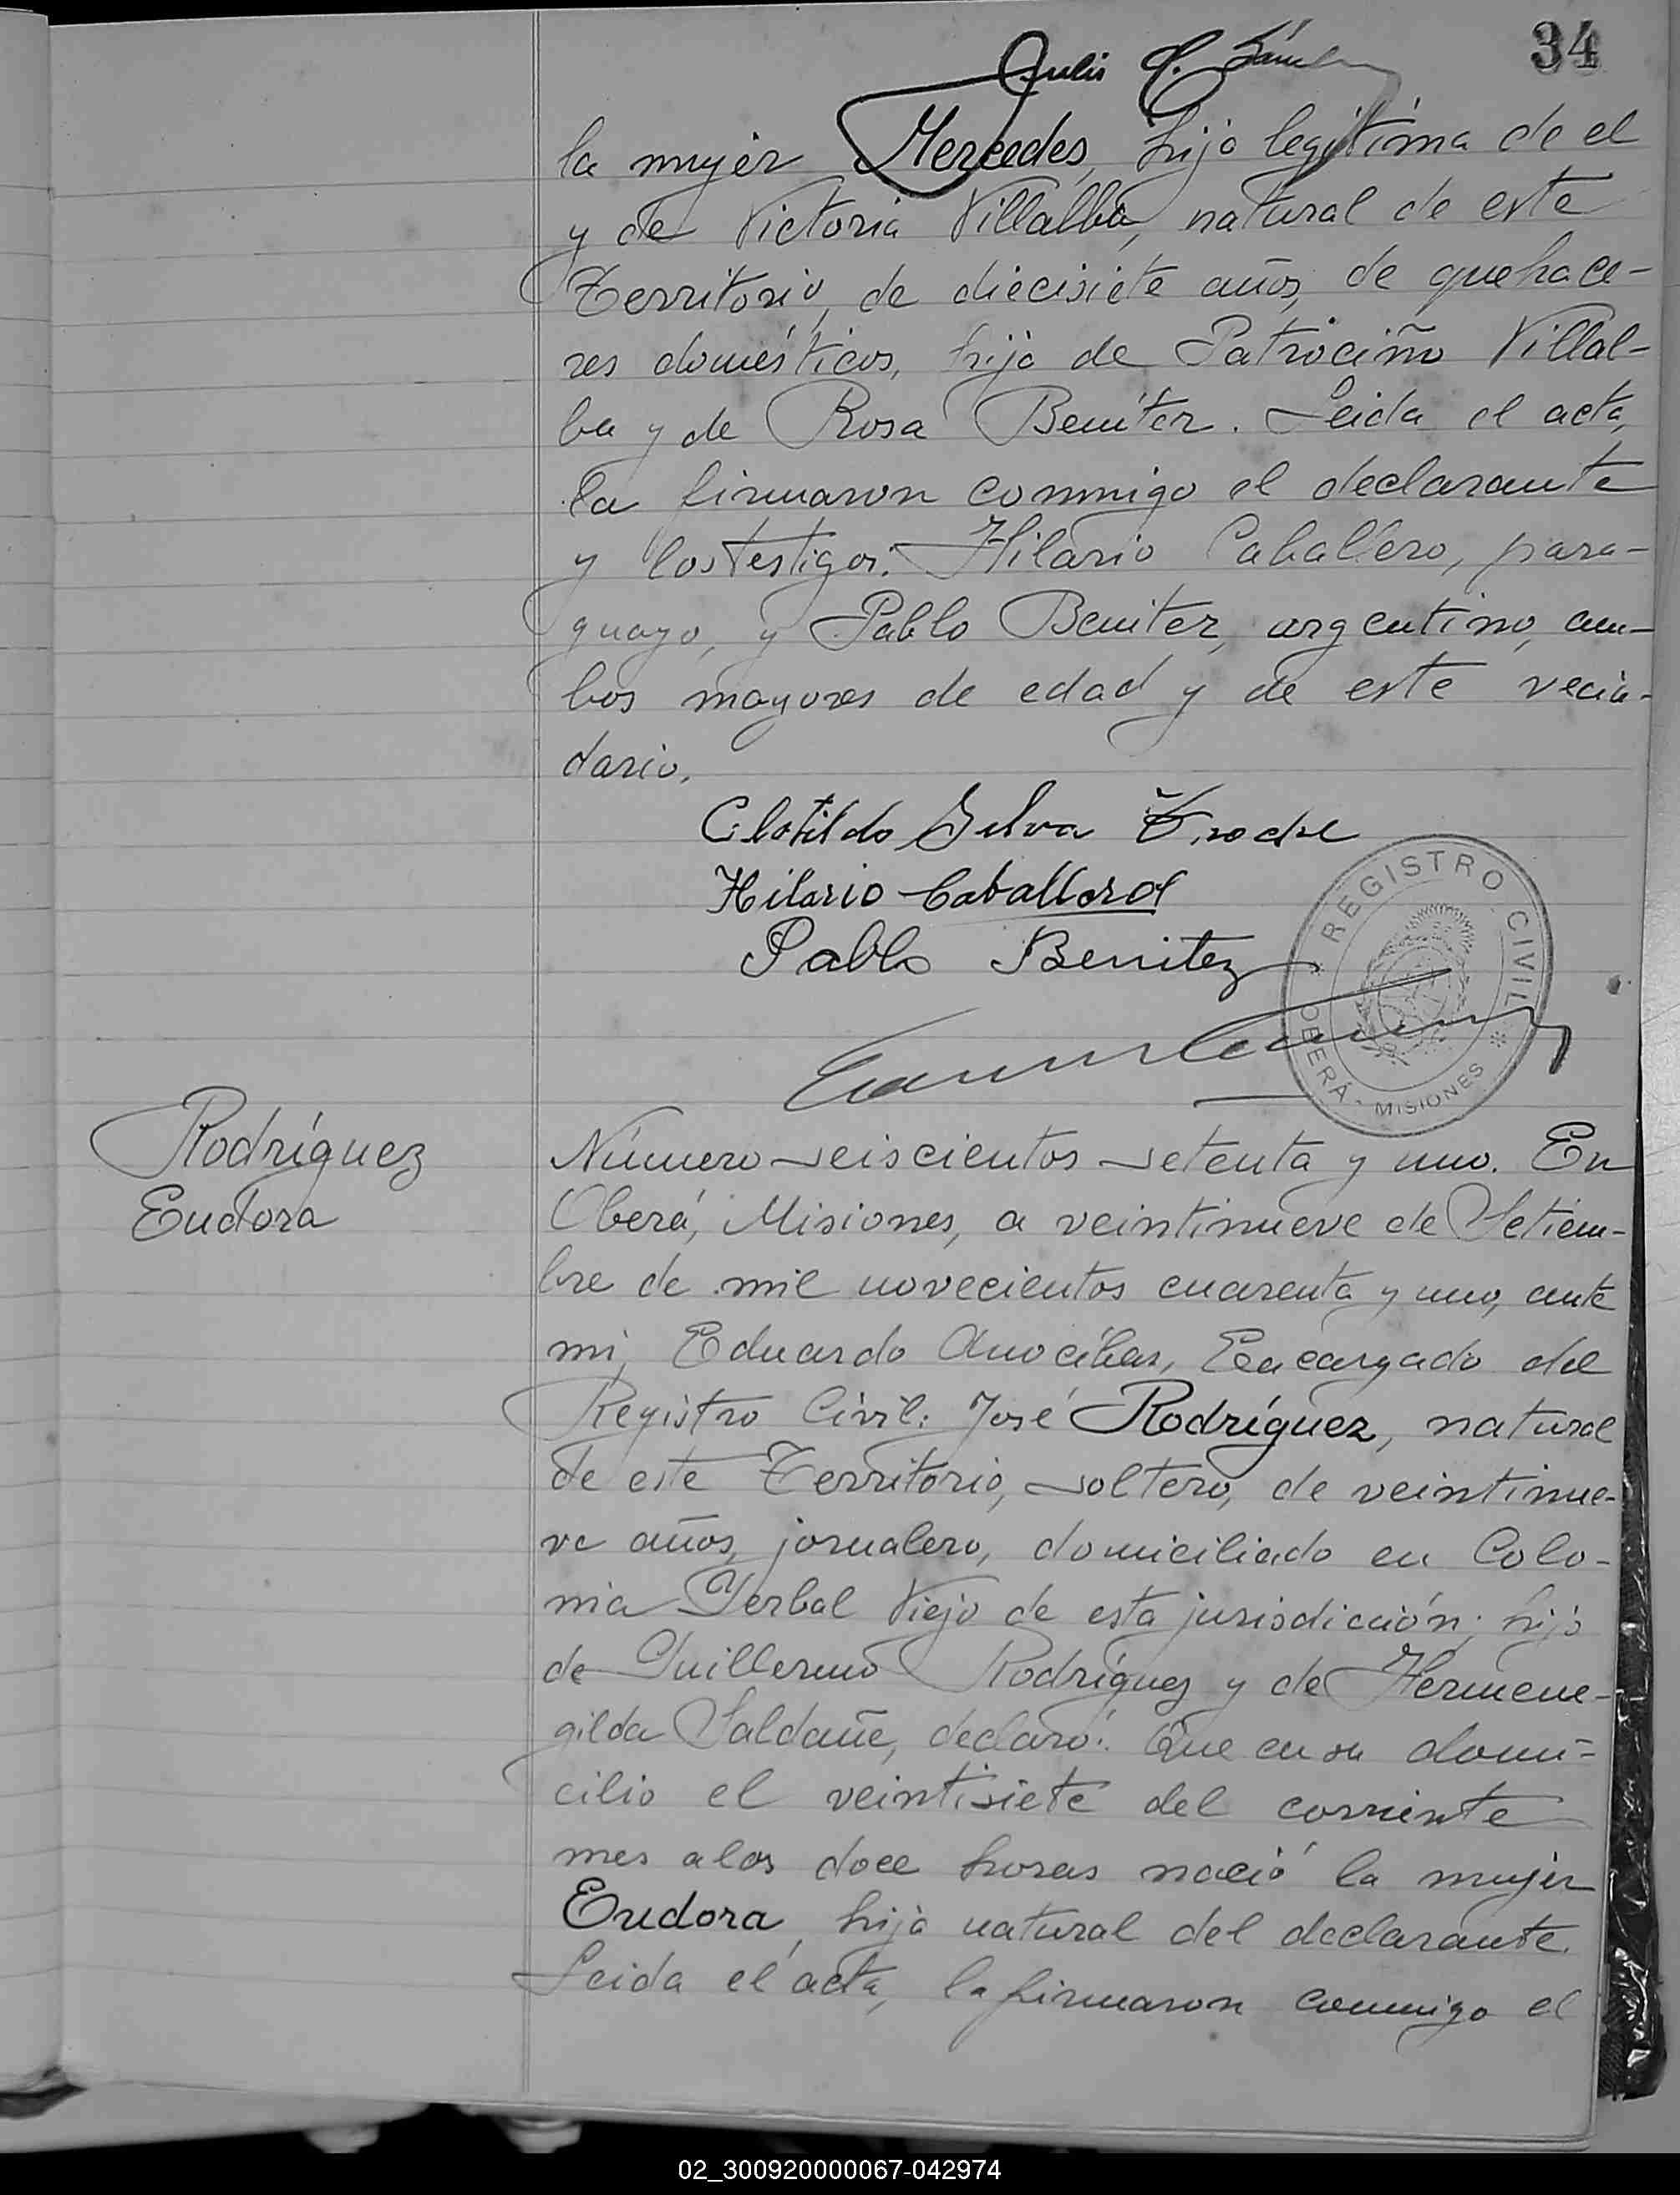 34
la mujer Mercedes, hija legítima de el
y de Victoria Villalba, natural de este
Territorio, de diecisiete años, de quehace-
res domésticos, hija de Patrociño Villal-
ba y de Rosa Benítez. Leida el acta,
la firmaron conmigo el declarante
y los testigos: Hilario Caballero, para-
guayo, y Pablo Benitez, argentino, am-
bos mayores de edad y de este vecin-
dario.
Clotildo Silva
Hilario Caballero
Pablo Benitez
REGISTRO CIVIL
OBERÁ - MISIONES
Rodríguez
Eudora
Número seiscientos setenta y uno. En
Oberá, Misiones, a veintinueve de Setiem-
bre de mil novecientos cuarenta y uno, ante
mi, Eduardo Encargado del
Registro Civil: José Rodríguez, natural
de este Territorio, soltero, de veintinue-
ve años, jornalero, domiciliado en Colo-
nia Yerbal Viejo de esta jurisdicción; hijo
de Guillermo Rodríguez y de Hermene-
gilda Saldañe, declaró: Que en su domi-
cilio el veintisiete del corriente
mes a las doce horas nació la mujer
Eudora, hija natural del declarante.
Leida el acta, la firmaron conmigo el
02_300920000067-042974